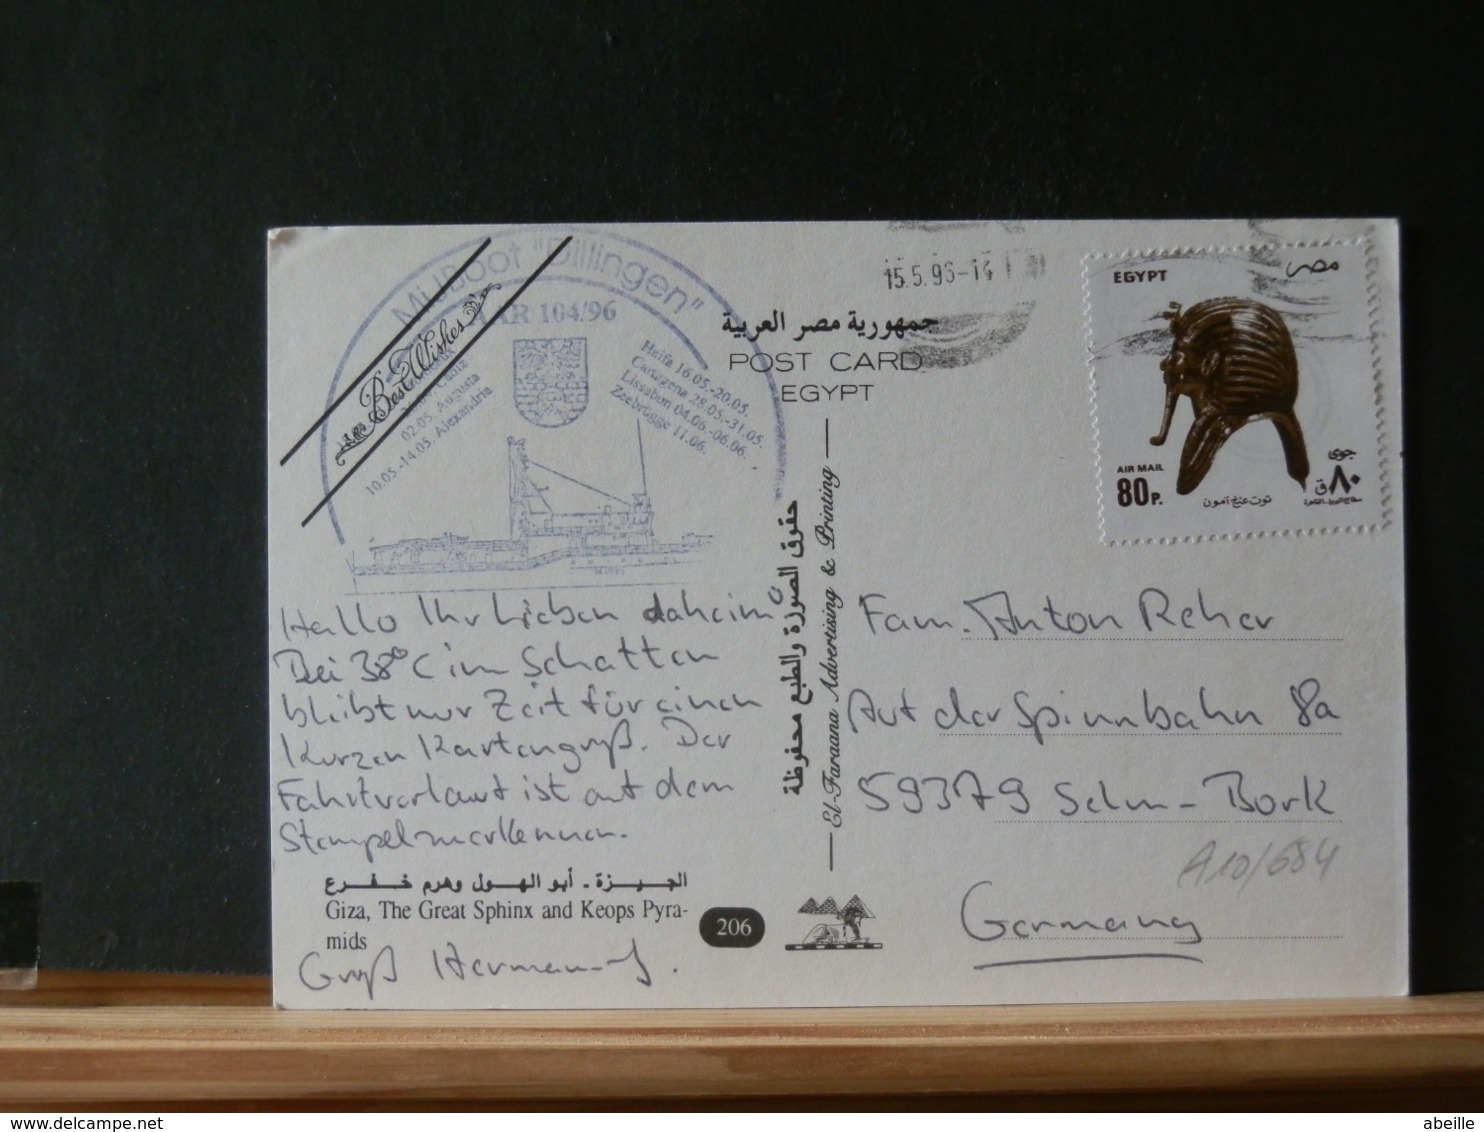 MJBoot "Dillingen"
AAR 104/96
Best Wishes
Cadiz
02.05. Augusta
10.05.-14.05. Alexandria
Haifa 16.05.-20.05.
Cartagena 28.05.-31.05.
Lissabon 04.06.-06.06.
Zeebrügge 11.06.
15.5.96-14
جمهورية مصر العربية
POST CARD
EGYPT
EGYPT
مصر
AIR MAIL
80 P.
جوى
٨٠ ق
توت عنخ آمون
حقوق الصورة والطبع محفوظة
El-Faraana Advertising & Printing
Hallo Ihr Lieben daheim!
Bei 38°C im Schatten
bleibt nur Zeit für einen
kurzen Kartengruß. Der
Fahrtverlauf ist auf dem
Stempel zu erkennen.
الجيزة - أبو الهول وهرم خفرع
Giza, The Great Sphinx and Keops Pyra-
mids
206
Gruß Hermann-J.
Fam. Anton Reher
Auf der Spinnbahn 8a
59379 Selm-Bork
A10/684
Germany
abeille